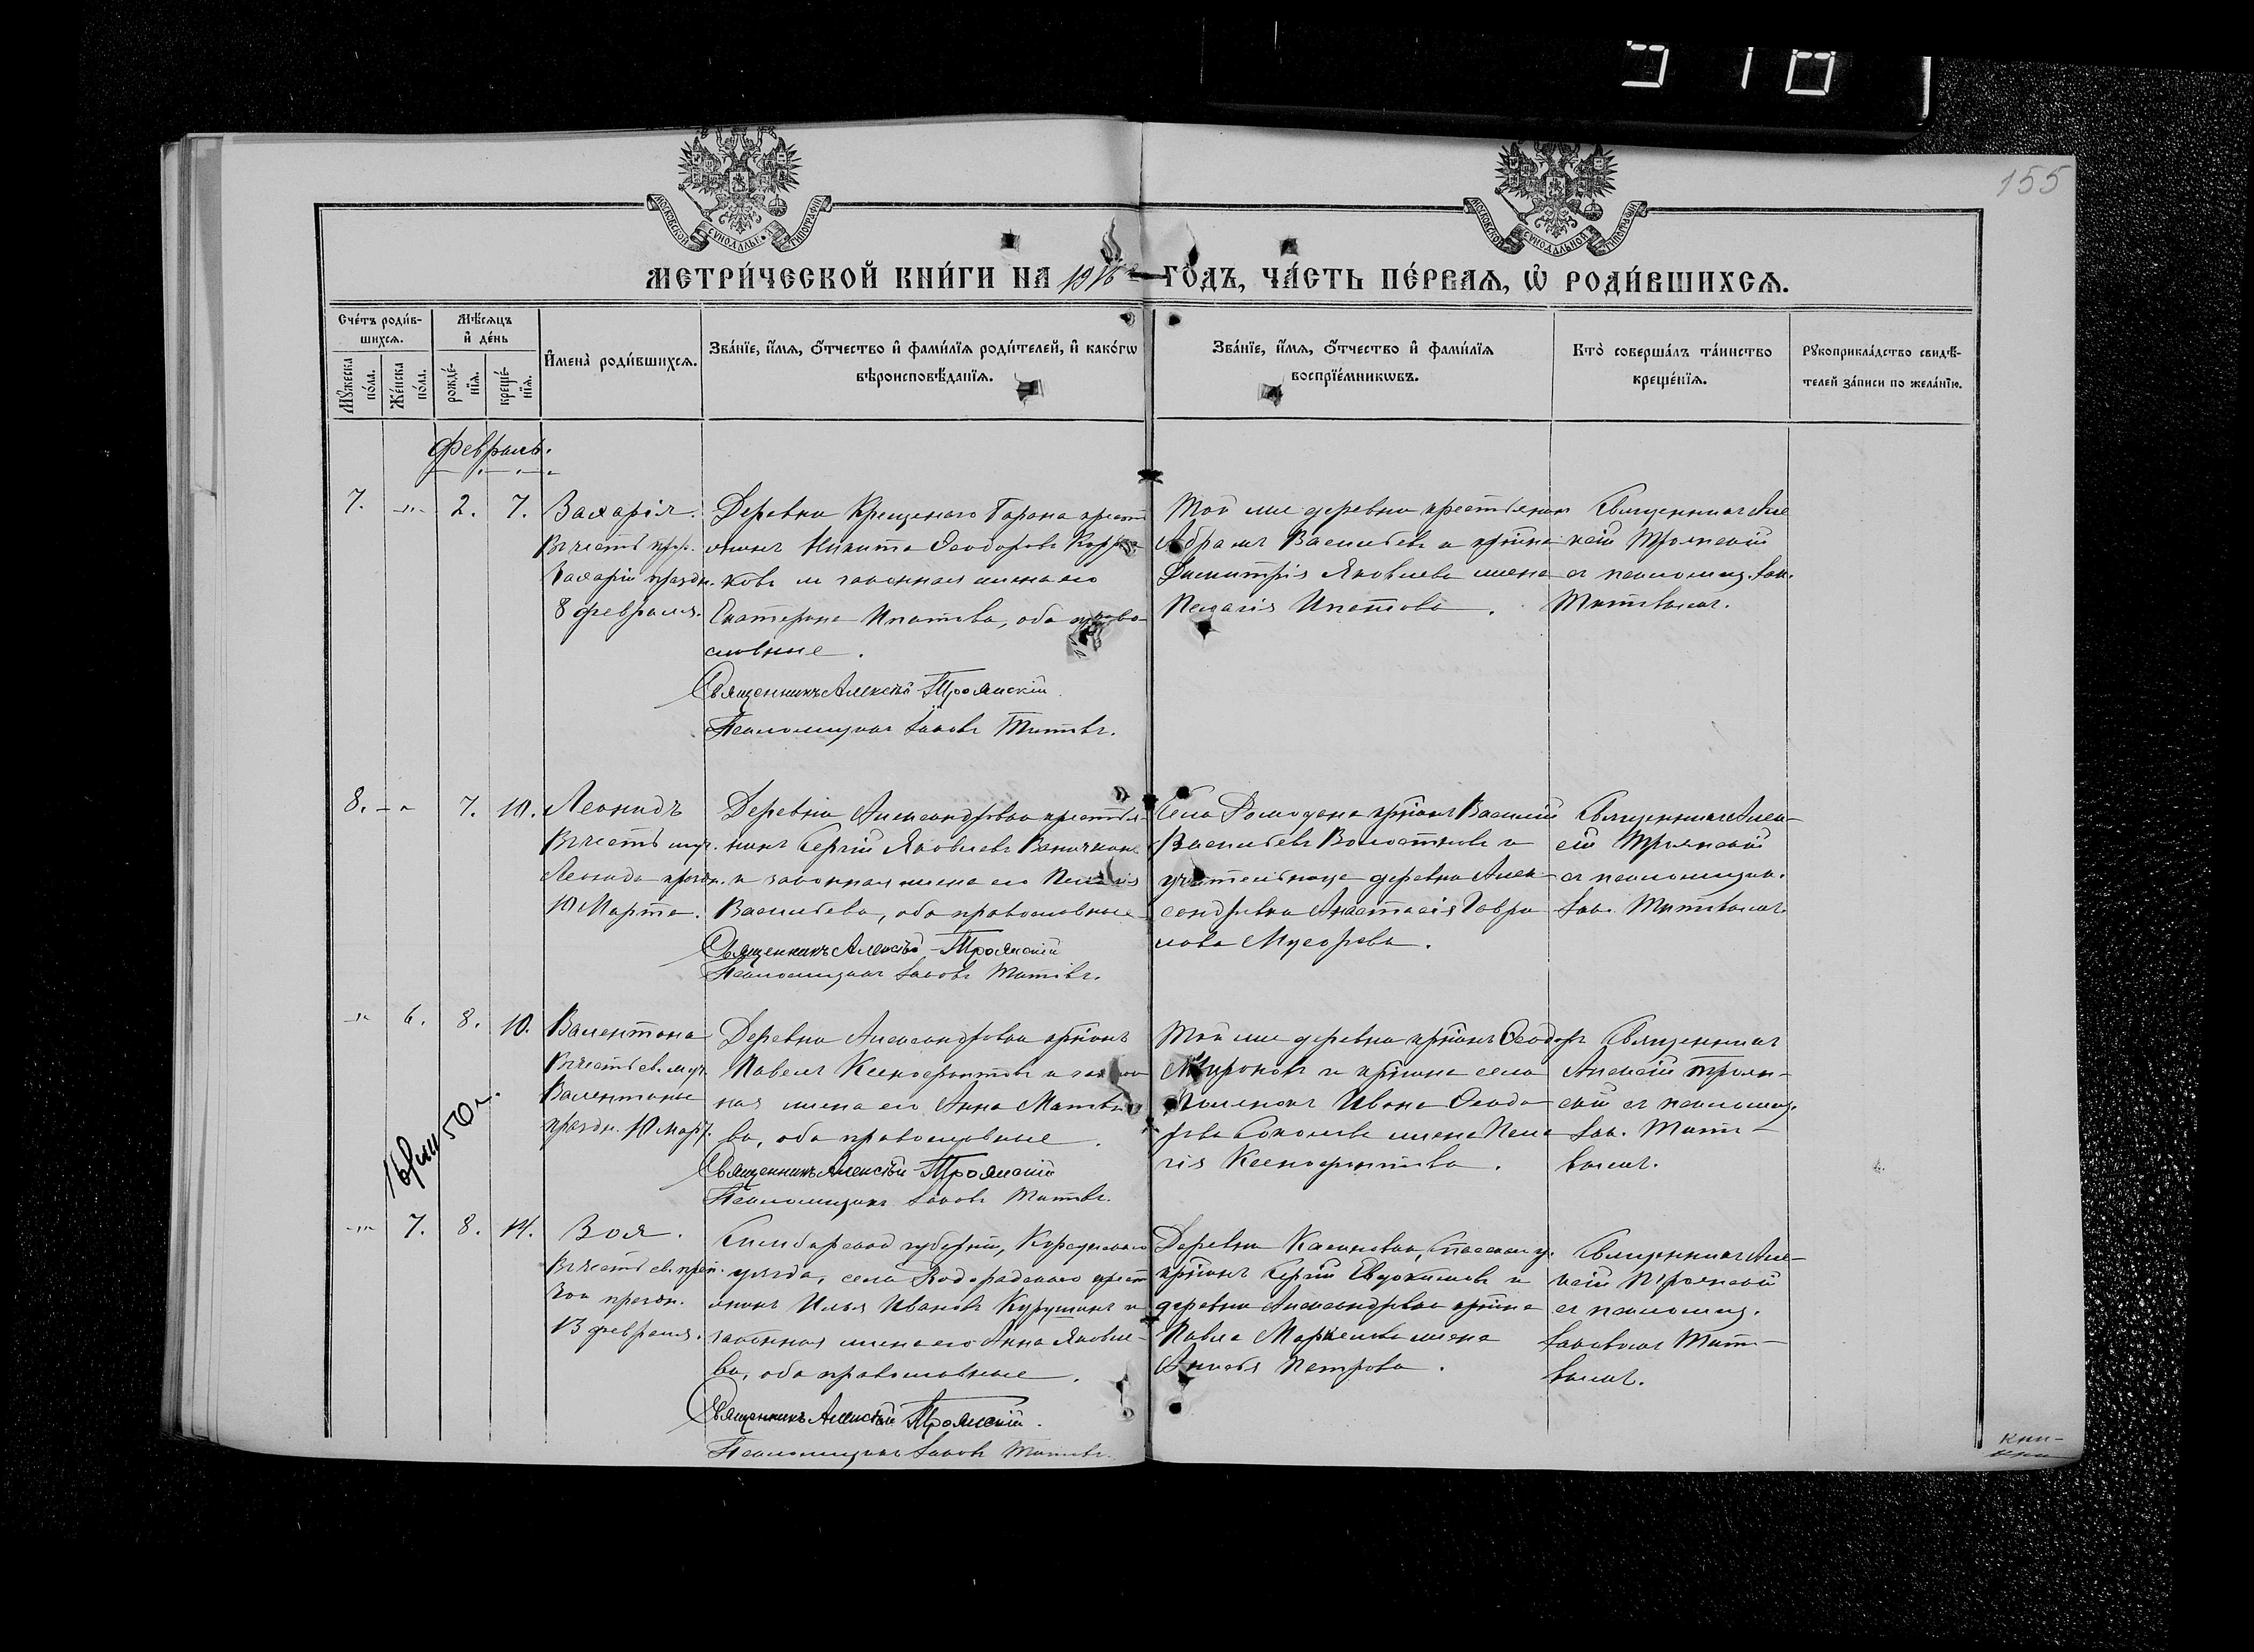 518
155
МОСКОВСКОЙ СѴНОДАЛЬНОЙ ТИПОГРАФІИ
МОСКОВСКОЙ СѴНОДАЛЬНОЙ ТИПОГРАФІИ
МЕТРИ́ЧЕСКОЙ КНИ́ГИ НА 1916 ГО́ДЪ, ЧА́СТЬ ПЕ́РВАѦ, Ѡ҆ РОДИ́ВШИХСѦ.
Сче́тъ роди́в-
шихсѧ.
Мꙋ́жеска по́ла.
Же́нска по́ла.
Мѣ́сѧцъ
и҆ де́нь
рожде́-
нїѧ.
креще́-
нїѧ.
И҆мена̀ роди́вшихсѧ.
Зва́нїе, и҆́мѧ, ѻ҆́тчество и҆ фами́лїѧ роди́телей, и҆ како́гѡ
вѣроисповѣ́данїѧ.
Зва́нїе, и҆́мѧ, ѻ҆́тчество и҆ фами́лїѧ
воспрїе́мникѡвъ.
Кто̀ соверша́лъ та́инство
креще́нїѧ.
Рꙋкоприкла́дство свидѣ́-
телей за́писи по жела́нїю.
Февраль.
7. -"- 2. 7.
Захарія.
Въ честь прор.
Захаріи праздн.
8 февраля.
Деревни Крещенаго Барана крест
янинъ Никита Ѳеодоровъ
ковъ и законная жена его
Екатерина Ипатова, оба право-
славные.
Священникъ Алексѣй Троянскій
Псаломщикъ Іаковъ Титовъ.
Той же деревни крестьянинъ
Абрамъ Васильевъ и кр-ина
Димитрія Яковлева жена
Пелагія Ипатова.
Священникъ Але
ксѣй Троянскій
съ псаломщ. Іак.
Титовымъ.
8. - " 7. 10.
Леонидъ
Въ честь муч.
Леонида праздн.
10 Марта.
Деревни Александровки крестья-
нинъ Сергій Яковлевъ
и законная жена его Пелагія
Васильева, оба православные
Священникъ Алексѣй Троянскій
Псаломщикъ Іаковъ Титовъ.
Села Ромодана кр-инъ Василій
Васильевъ и
учительница деревни Алек-
сандровки Анастасія Гаври
лова
Священникъ Алек-
сѣй Троянскій
съ псаломщик.
Іак. Титовымъ.
-"- 6. 8. 10.
Валентина
Въ честь св. муч.
Валентины
праздн. 10 февр.
Деревни Александровки кр-инъ
Павелъ Ксенофонтовъ и закон
ная жена его Анна Матвѣе
ва, оба православные.
Священникъ Алексѣй Троянскій
Псаломщикъ Іаковъ Титовъ.
Той же деревни кр-инъ Ѳеодоръ
Мироновъ и кр-инка села
Ивана Ѳеодо
рова Соколова жена Пела
гія Ксенофонтова.
Священникъ
Алексѣй Троян-
скій съ псаломщ.
Іак. Тито-
вымъ.
-"- 7. 8. 14.
Зоя.
Въ честь св. преп.
Зои праздн.
13 февраля.
Симбирской губерніи, Корсунскаго
уѣзда, села крест
янинъ Илья Ивановъ и
законная жена его Анна Яковле-
ва, оба православные.
Священникъ Алексѣй Троянскій.
Псаломщикъ Іаковъ Титовъ.
Деревни Спасскаго у.
кр-инъ Сергій Евдокимовъ и
деревни Александровки кр-ина
Павла Маркелова жена
Петрова.
Священникъ Але-
ксѣй Троянскій
съ псаломщ.
Іаковомъ Тито-
вымъ.